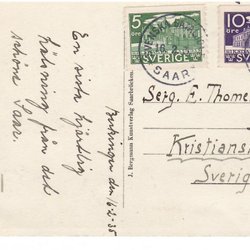 En sista hjärtlig
hälsning från det
schöne Saar
Bickingen den 16-2-35
J. Bergmann Kunstverlag Saarbrücken.
5
öre
SVERIGE
10
öre
SVERIGE
SVENSKA
16.2
SAAR
Serg. E. Thome
Kristians
Sverig